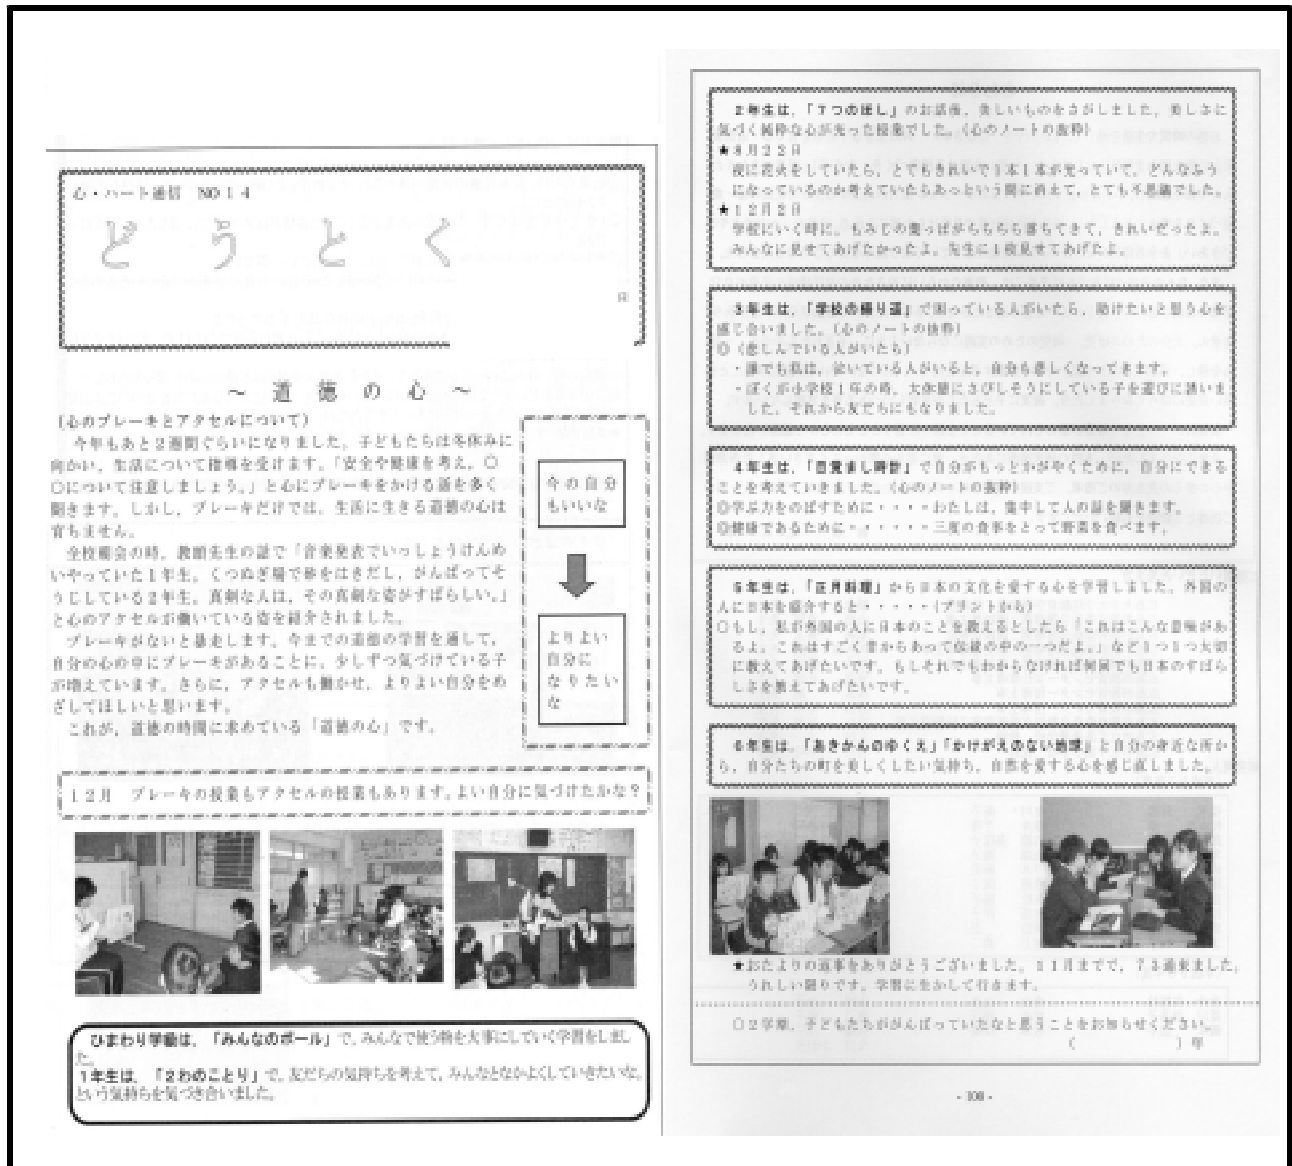 心・ハート通信 NO14
どうとく
～ 道 徳 の 心 ～
(心のブレーキとアクセルについて)
今年もあと2週間ぐらいになりました。子どもたちは冬休みに
向かい、生活について指導を受けます。「安全や健康を考え、○
○について注意しましょう。」と心にブレーキをかける話を多く
聞きます。しかし、ブレーキだけでは、生活に生きる道徳の心は
育ちません。
全校朝会の時、教頭先生の話で「音楽発表でいっしょうけんめ
いやっていた1年生。くつぬぎ場で砂をはきだし、がんばってそ
うじしている2年生。真剣な人は、その真剣な姿がすばらしい。」
と心のアクセルが働いている姿を紹介されました。
ブレーキがないと暴走します。今までの道徳の学習を通して、
自分の心の中にブレーキがあることに、少しずつ気づけている子
が増えています。さらに、アクセルも働かせ、よりよい自分をめ
ざしてほしいと思います。
これが、道徳の時間に求めている「道徳の心」です。
今の自分
もいいな
よりよい
自分に
なりたい
な
12月 ブレーキの授業もアクセルの授業もあります。よい自分に気づけたかな？
ひまわり学級は、「みんなのボール」で、みんなで使う物を大事にしていく学習をしまし
た。
1年生は、「2わのことり」で、友だちの気持ちを考えて、みんなとなかよくしていきたいな。
という気持ちを気づき合いました。
2年生は、「7つのほし」のお話後、美しいものをさがしました。美しさに
気づく純粋な心が光った授業でした。(心のノートの抜粋)
★8月22日
夜に花火をしていたら、とてもきれいで1本1本が光っていて、どんなふう
になっているのか考えていたらあっという間に消えて、とても不思議でした。
★12月2日
学校にいく時に、もみじの葉っぱがちらちら落ちてきて、きれいだったよ。
みんなに見せてあげたかったよ。先生に1枚見せてあげたよ。
3年生は、「学校の帰り道」で困っている人がいたら、助けたいと思う心を
感じ合いました。(心のノートの抜粋)
◎(悲しんでいる人がいたら)
・誰でも私は、泣いている人がいると、自分も悲しくなってきます。
・ぼくが小学校1年の時、大休憩にさびしそうにしている子を遊びに誘いま
した。それから友だちにもなりました。
4年生は、「目覚まし時計」で自分がもっとかがやくために、自分にできる
ことを考えていきました。(心のノートの抜粋)
◎学ぶ力をのばすために・・・・わたしは、集中して人の話を聞きます。
◎健康であるために・・・・・・三度の食事をとって野菜を食べます。
5年生は、「正月料理」から日本の文化を愛する心を学習しました。外国の
人に日本を紹介すると・・・・・(プリントから)
○もし、私が外国の人に日本のことを教えるとしたら「これはこんな意味があ
るよ。これはすごく昔からあって伝統の中の一つだよ。」など1つ1つ大切
に教えてあげたいです。もしそれでもわからなければ何回でも日本のすばら
しさを教えてあげたいです。
6年生は、「あきかんのゆくえ」「かけがえのない地球」と自分の身近な所か
ら、自分たちの町を美しくしたい気持ち、自然を愛する心を感じ直しました。
★おたよりの返事をありがとうございました。11月までで、73通来ました。
うれしい限りです。学習に生かして行きます。
○2学期、子どもたちががんばっていたなと思うことをお知らせください。
( )年
- 108 -